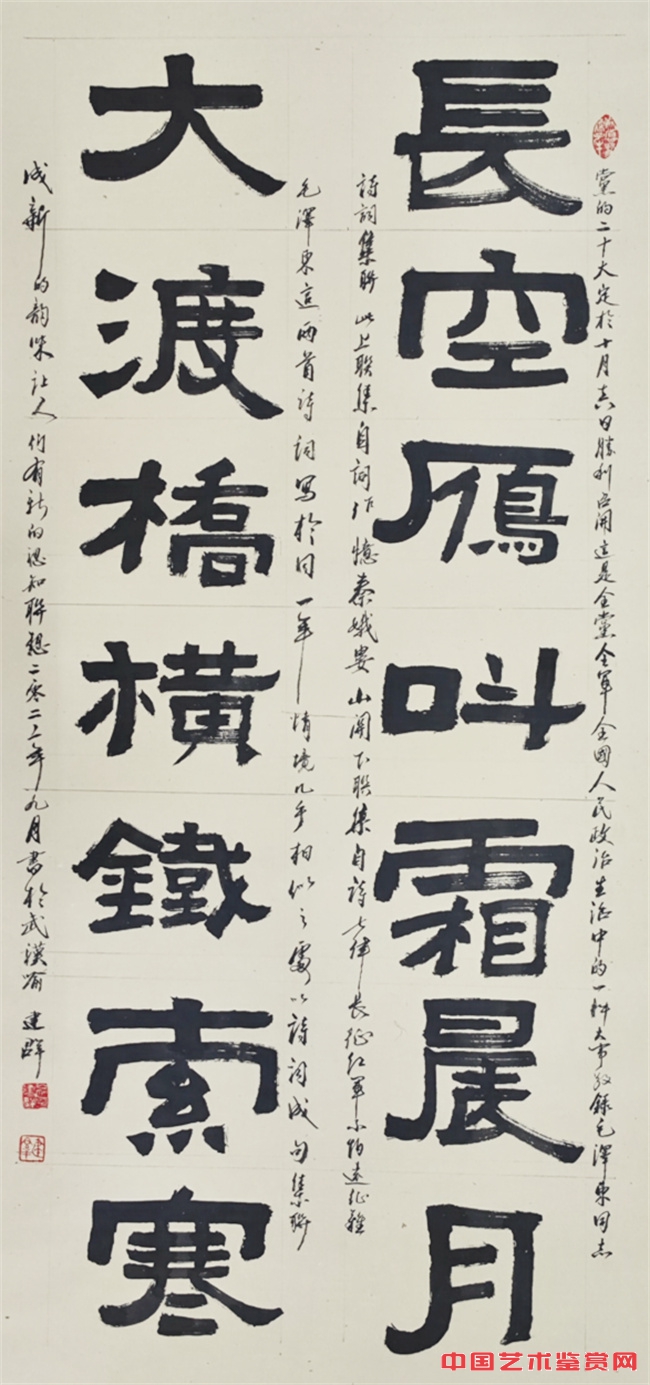 長空雁叫霜晨月
大渡橋橫鐵索寒
黨的二十大定於十月吉日勝利召開這是全黨全軍全國人民政治生活中的一件大事敬錄毛澤東同志
詩詞集聯 此上聯集自詞作憶秦娥婁山關下聯集自詩七律長征紅軍不怕遠征難
毛澤東這兩首詩詞寫於同一年情境幾乎相似之處以詩詞成句集聯
成新的韻味讓人們有新的認知聯想二零二二年九月書於武漢喻建群
中国艺术鉴赏网